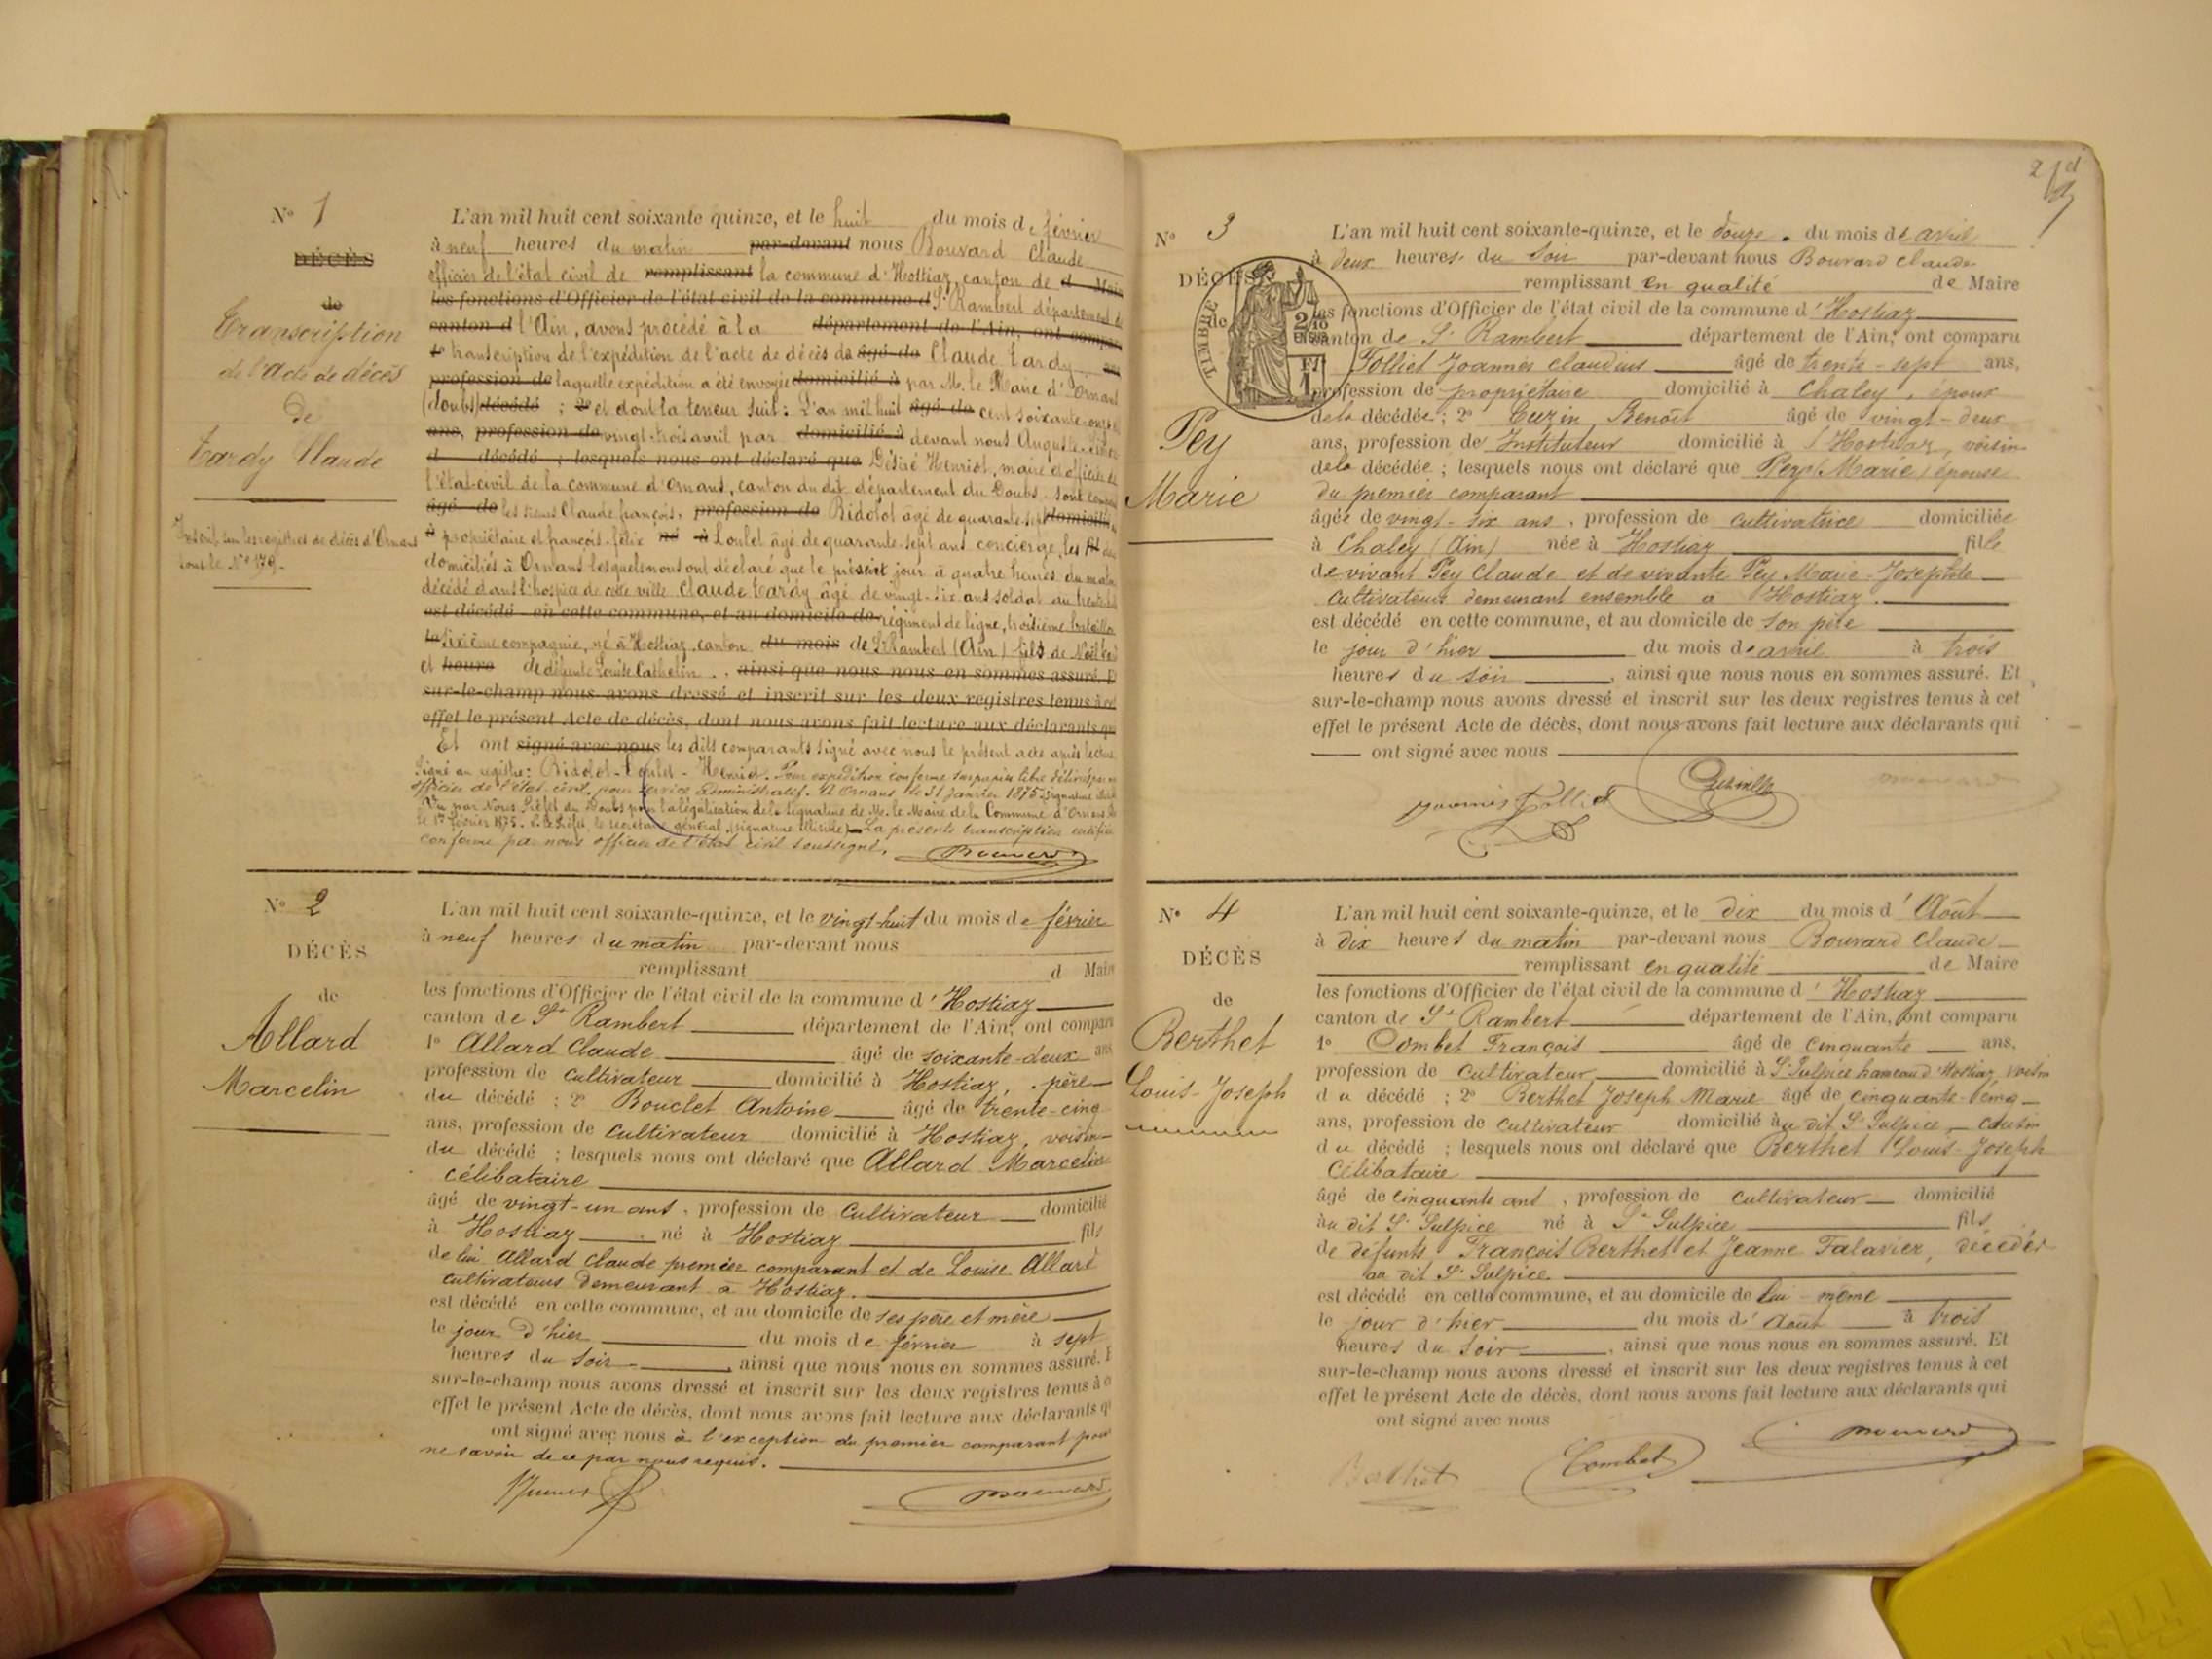 N° 1
DÉCÈS
de
Transcription
de l'acte de décès
de
Tardy Claude
Inscrit sur les registres de décès d'Ornans
sous le N° 179.
L'an mil huit cent soixante quinze, et le huit du mois de février
à neuf heures du matin par-devant nous Bouvard Claude
officier de l'état civil de remplissant la commune d'Hostiaz, canton de d Maire
les fonctions d'Officier de l'état civil de la commune d St Rambert département de
canton d l'Ain, avons procédé à la département de l'Ain, ont comparu
1° transcription de l'expédition de l'acte de décès de âgé de Claude Tardy ans
profession de laquelle expédition a été envoyée domicilié à par M. le Maire d'Ornans
(Doubs) décédé ; 2° et dont la teneur suit : L'an mil huit âgé de cent soixante-onze
ans, profession de vingt-trois avril par domicilié à devant nous Auguste
d décédé ; lesquels nous ont déclaré que Désiré Henriot, maire et officier de
l'état-civil de la commune d'Ornans, canton du dit département du Doubs. sont comparus
âgé de les sieurs Claude françois, profession de Bidolot âgé de quarante-sept domicilié
à propriétaire et françois-félix né à Loulet âgé de quarante-sept ans concierge, les
domiciliés à Ornans lesquels nous ont déclaré que le présent jour à quatre heures du matin
décédé dans l'hospice de cette ville Claude Tardy âgé de vingt-six ans soldat au
est décédé en cette commune, et au domicile de régiment de ligne, troisième bataillon
le sixième compagnie, né à Hostiaz, canton du mois de St Rambert (Ain) fils de Noël
et heure de défunte Louise Cathelin. ainsi que nous nous en sommes assuré. Et
sur-le-champ nous avons dressé et inscrit sur les deux registres tenus à cet
effet le présent Acte de décès, dont nous avons fait lecture aux déclarants qui
Et ont signé avec nous les dits comparants signé avec nous le présent acte après lecture.
Signé au registre : Bidolot - Loulet - Henriot. Pour expédition conforme sur papier libre délivrée par
officier de l'état civil, pour service administratif. A Ornans le 31 Janvier 1875
Vu par Nous Préfet du Doubs pour la légalisation de la signature de M. le Maire de la Commune d'Ornans
le 1er février 1875. le secrétaire général (signature illisible) La présente transcription certifiée
conforme par nous officier de l'état civil soussigné.
Bouvard
N° 2
DÉCÈS
de
Allard
Marcelin
L'an mil huit cent soixante-quinze, et le vingt-huit du mois de février
à neuf heures du matin par-devant nous
remplissant d Maire
les fonctions d'Officier de l'état civil de la commune d'Hostiaz
canton de St Rambert département de l'Ain, ont comparu
1° Allard Claude âgé de soixante-deux ans
profession de cultivateur domicilié à Hostiaz, père
du décédé ; 2° Bouclet Antoine âgé de trente-cinq
ans, profession de cultivateur domicilié à Hostiaz, voisin
du décédé ; lesquels nous ont déclaré que Allard Marcelin
célibataire
âgé de vingt-un ans, profession de cultivateur domicilié
à Hostiaz né à Hostiaz fils
de lui Allard Claude premier comparant et de Louise Allard
cultivateurs demeurant à Hostiaz.
est décédé en cette commune, et au domicile de ses père et mère
le jour d'hier du mois de février à sept
heures du soir, ainsi que nous nous en sommes assuré. E
sur-le-champ nous avons dressé et inscrit sur les deux registres tenus à c
effet le présent Acte de décès, dont nous avons fait lecture aux déclarants q
ont signé avec nous à l'exception du premier comparant pour
ne savoir de ce par nous requis.
Bouvard
2
N° 3
DÉCÈS
de
TIMBRE
2/10
EN SUS
Pey
Marie
L'an mil huit cent soixante-quinze, et le douze. du mois de avril
à deux heures du soir par-devant nous Bouvard Claude
remplissant en qualité de Maire
les fonctions d'Officier de l'état civil de la commune d'Hostiaz
canton de St Rambert département de l'Ain, ont comparu
Tolliet Joannès Claudius âgé de trente-sept ans,
profession de propriétaire domicilié à Chaley, époux
de la décédée ; 2° Cuzin Benoît âgé de vingt-deux
ans, profession de Instituteur domicilié à Hostiaz, voisin
de la décédée ; lesquels nous ont déclaré que Pey (Marie) épouse
du premier comparant
âgée de vingt-six ans, profession de cultivatrice domiciliée
à Chaley (Ain) née à Hostiaz fille
de vivant Pey Claude et de vivante Pey Marie-Josephte
cultivateurs demeurant ensemble à Hostiaz.
est décédé en cette commune, et au domicile de son père
le jour d'hier du mois de avril à trois
heures du soir, ainsi que nous nous en sommes assuré. Et
sur-le-champ nous avons dressé et inscrit sur les deux registres tenus à cet
effet le présent Acte de décès, dont nous avons fait lecture aux déclarants qui
ont signé avec nous
Joannès Tolliet
N° 4
DÉCÈS
de
Berthet
Louis-Joseph
L'an mil huit cent soixante-quinze, et le dix du mois d'Août
à dix heures du matin par-devant nous Bouvard Claude
remplissant en qualité de Maire
les fonctions d'Officier de l'état civil de la commune d'Hostiaz
canton de St Rambert département de l'Ain, ont comparu
1° Combet François âgé de cinquante ans,
profession de cultivateur domicilié à St Sulpice hameau d'Hostiaz, voisin
du décédé ; 2° Berthet Joseph Marie âgé de cinquante-cinq
ans, profession de cultivateur domicilié au dit St Sulpice, cousin
du décédé ; lesquels nous ont déclaré que Berthet Louis-Joseph
célibataire
âgé de cinquante ans, profession de cultivateur domicilié
au dit St Sulpice né à St Sulpice fils
de défunts François Berthet et Jeanne Falavier, décédés
au dit St Sulpice.
est décédé en cette commune, et au domicile de lui-même
le jour d'hier du mois d'Août à trois
heures du soir, ainsi que nous nous en sommes assuré. Et
sur-le-champ nous avons dressé et inscrit sur les deux registres tenus à cet
effet le présent Acte de décès, dont nous avons fait lecture aux déclarants qui
ont signé avec nous
Berthet Combet Bouvard